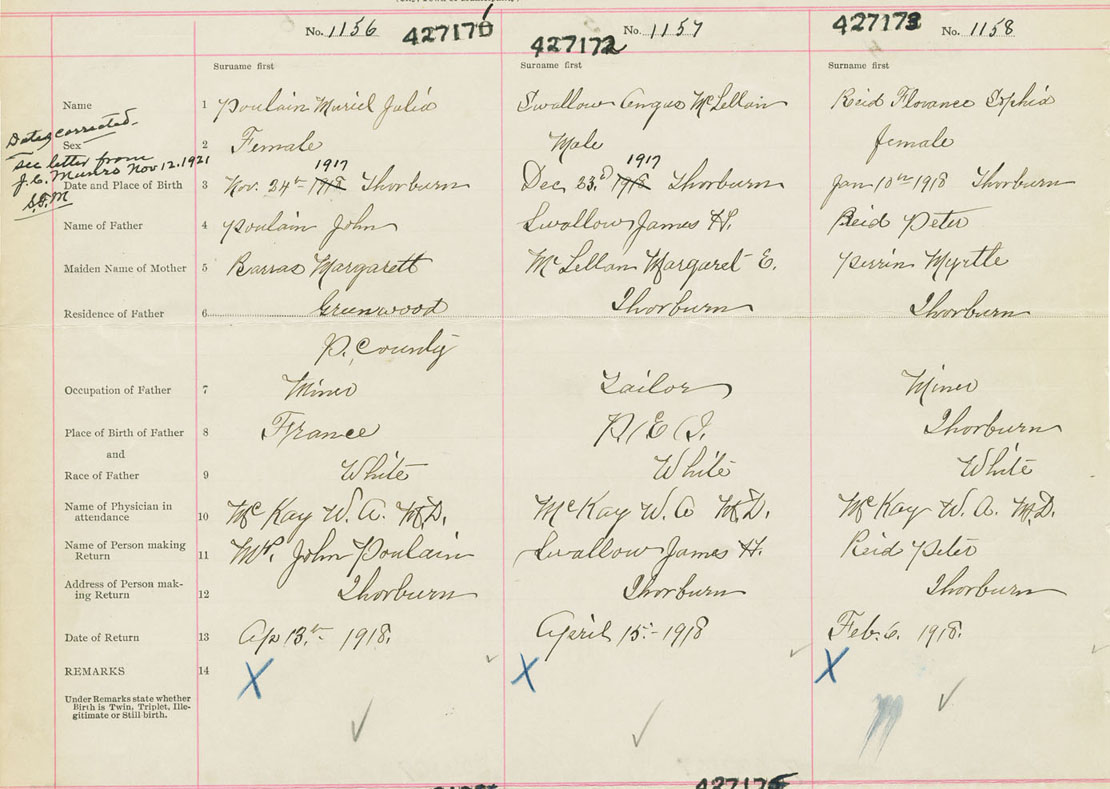 No. 1156 427171
427172 No. 1157
427173 No. 1158
Surname first Surname first Surname first
Name 1 Poulain Muriel Julia Swallow Angus McLellan Reid Florance Sophia
Dates corrected.
see letter from
J.C. Munro Nov 12, 1921
S.F.M
Sex 2 Female Male female
1917 1917
Date and Place of Birth 3 Nov. 24th 1918 Thorburn Dec 23rd 1918 Thorburn Jan 10th 1918 Thorburn
Name of Father 4 Poulain John Swallow James H. Reid Peter
Maiden Name of Mother 5 Barras Margarett McLellan Margaret E. Perrin Myrtle
Residence of Father 6 Greenwood Thorburn Thorburn
P. County
Occupation of Father 7 Miner Tailor Miner
Place of Birth of Father 8 France P.E.I. Thorburn
and
Race of Father 9 White White White
Name of Physician in
attendance 10 McKay W. A. M.D. McKay W. A M.D. McKay W. A. M.D.
Name of Person making
Return 11 Mrs. John Poulain Swallow James H. Reid Peter
Address of Person mak-
ing Return 12 Thorburn Thorburn Thorburn
Date of Return 13 Ap 13th 1918. April 15-1918 Feb. 6. 1918.
REMARKS 14 X X X
Under Remarks state whether
Birth is Twin, Triplet, Ille-
gitimate or Still birth.